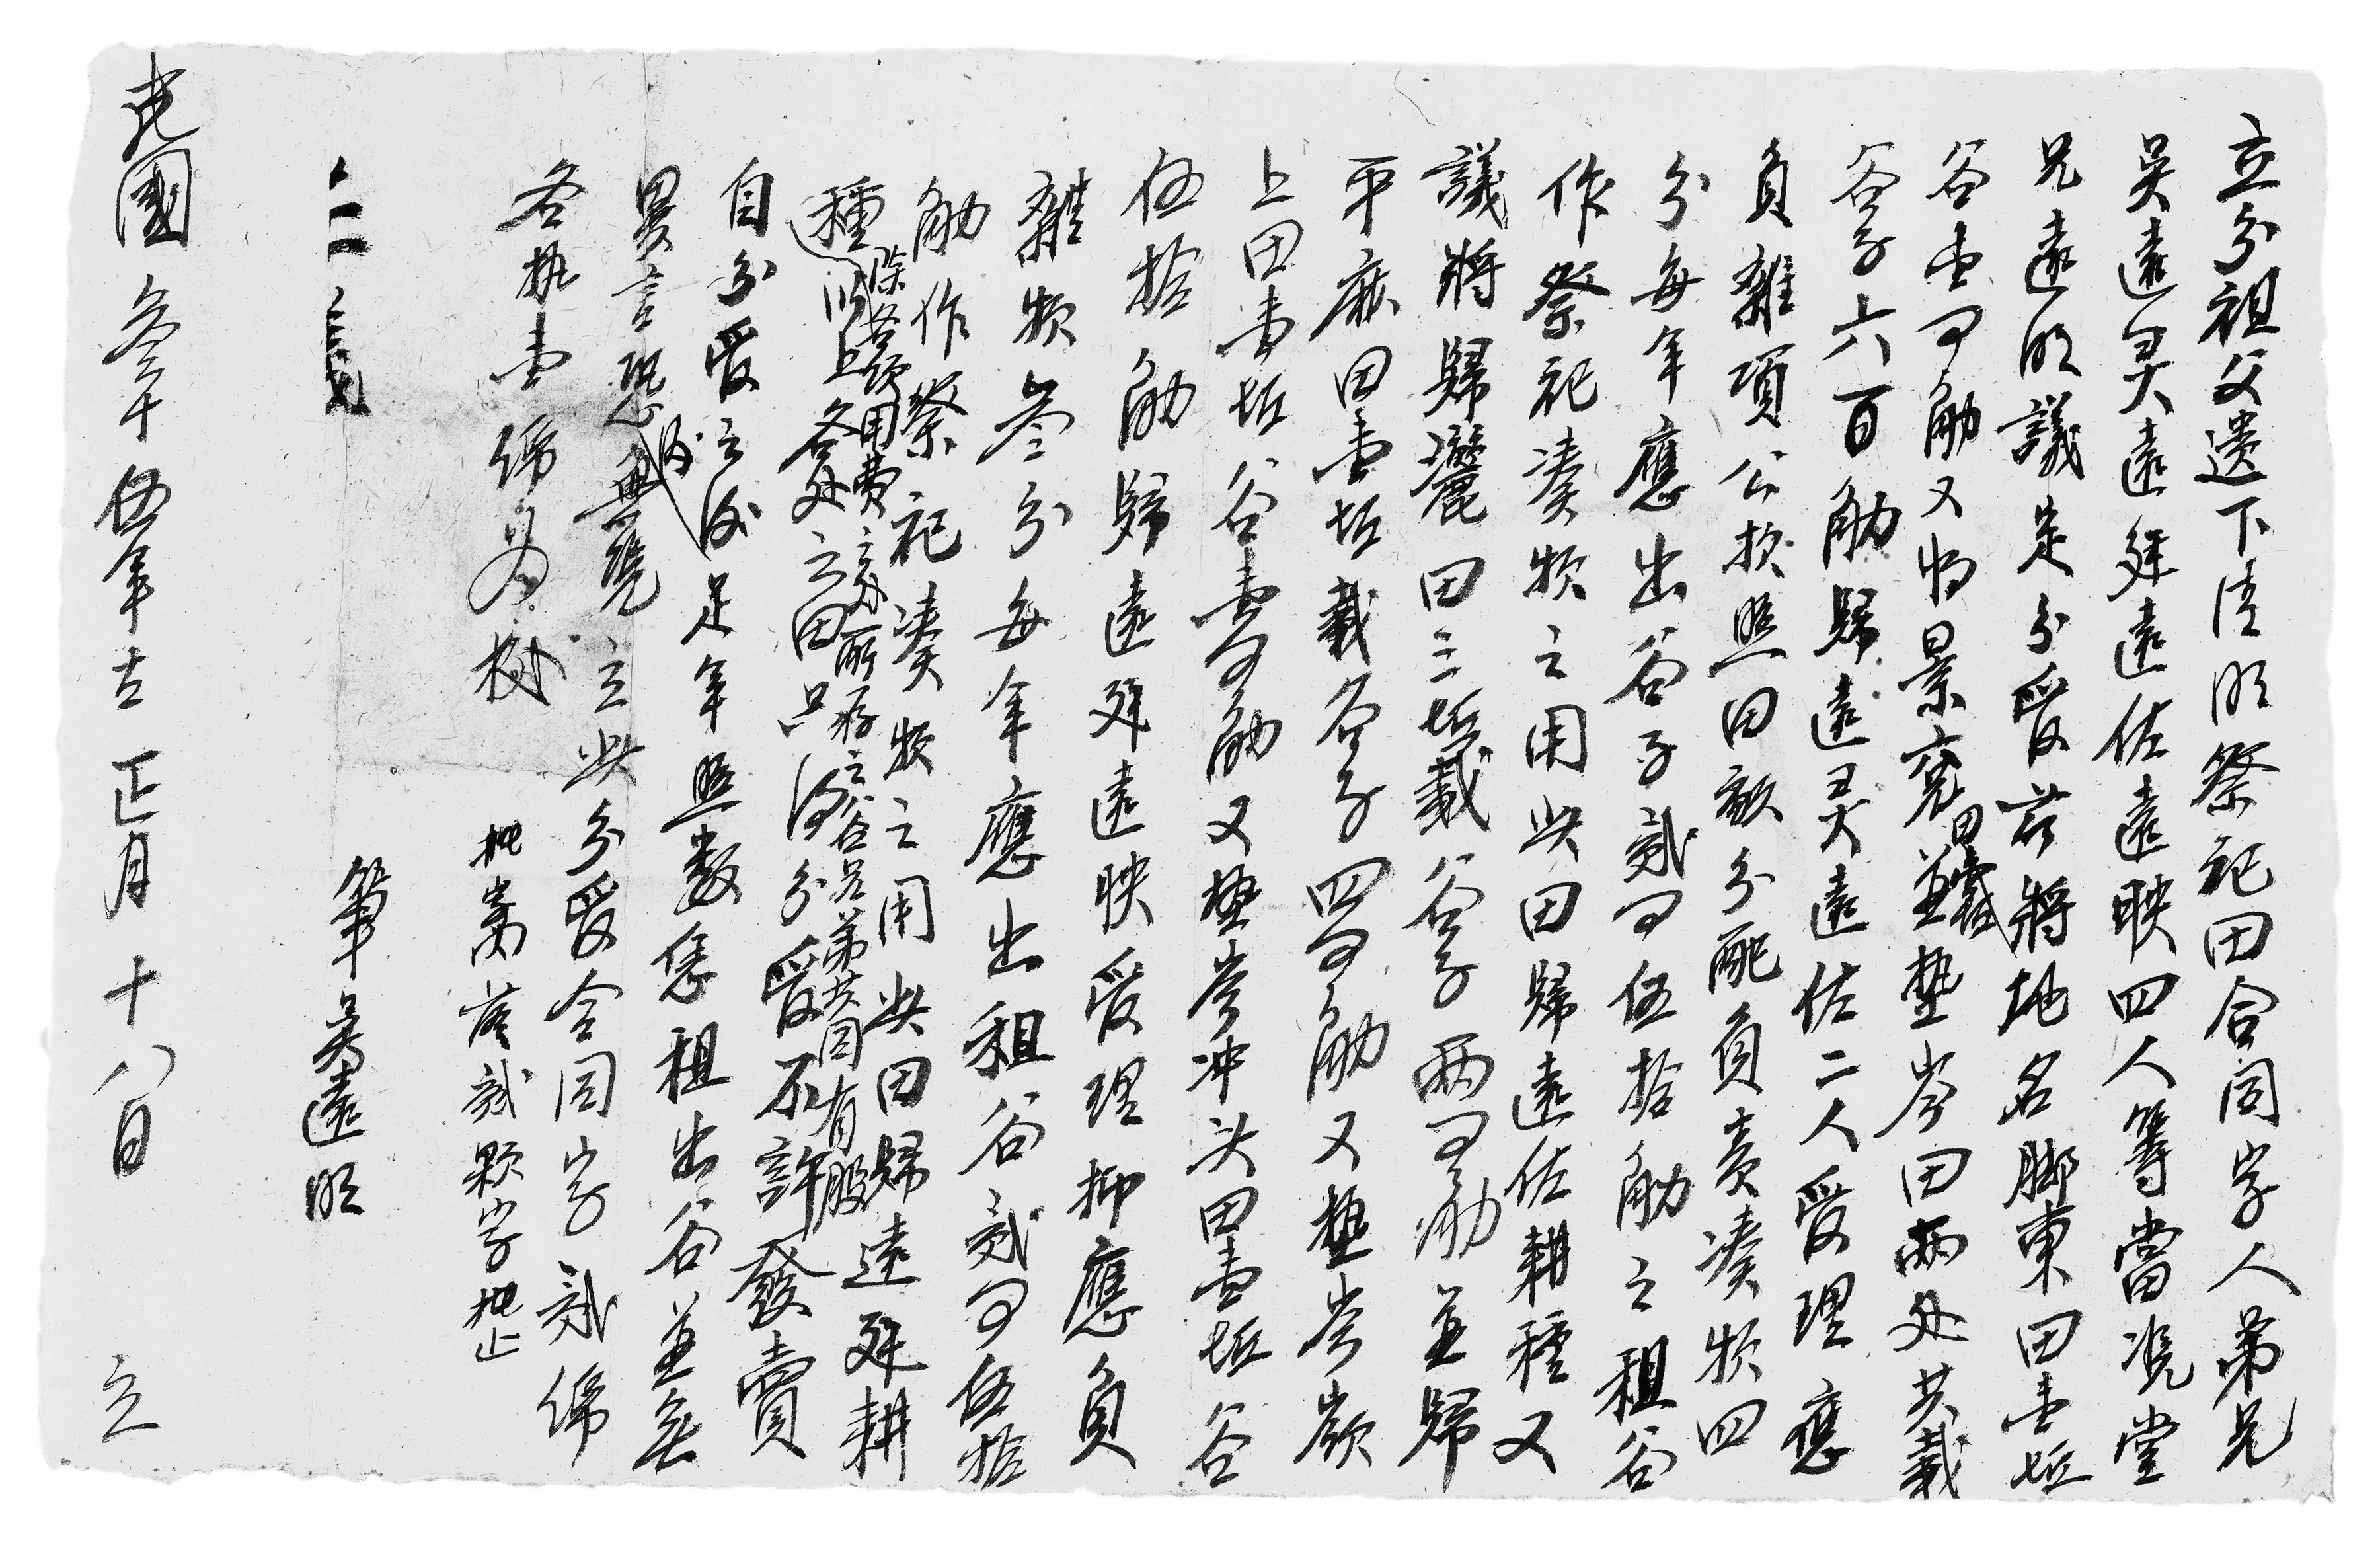 立分祖父遗下清明祭祀田合同字人弟兄
吴遠灵遠廷遠佐遠映四人等當凭堂
兄遠明議定分受茲將地名脚東田壹坵
谷壹百觔又將景寬田壹坵並墊岑田兩处共載
谷子六百觔歸遠灵遠佐二人受理應
負雜項公款照田畝分配負責湊款四
分每年應出谷子貳百伍拾觔之租谷
作祭祀湊款之用此田歸遠佐耕種又
議將歸灑田三坵載谷子兩百觔並歸
平廠田壹坵載谷子四百觔又墊岑嶺
上田壹坵谷壹百觔又墊岑冲头田壹坵谷
伍拾觔歸遠廷遠映受理抑應負
雜款叁分每年應出租谷貳百伍拾
觔作祭祀湊款之用此田歸遠廷耕
除各項用費之外所存之谷兄弟共同有股
種以上各处之田只許分受不許發賣
自分受之後定年照数憑租出谷並無
異言恐後無凭立此分受合同字貳紙
各执壹紙為據
批葉落貳顆字批止
合同
筆吴遠明
民國叁十伍年古正月十八日 立